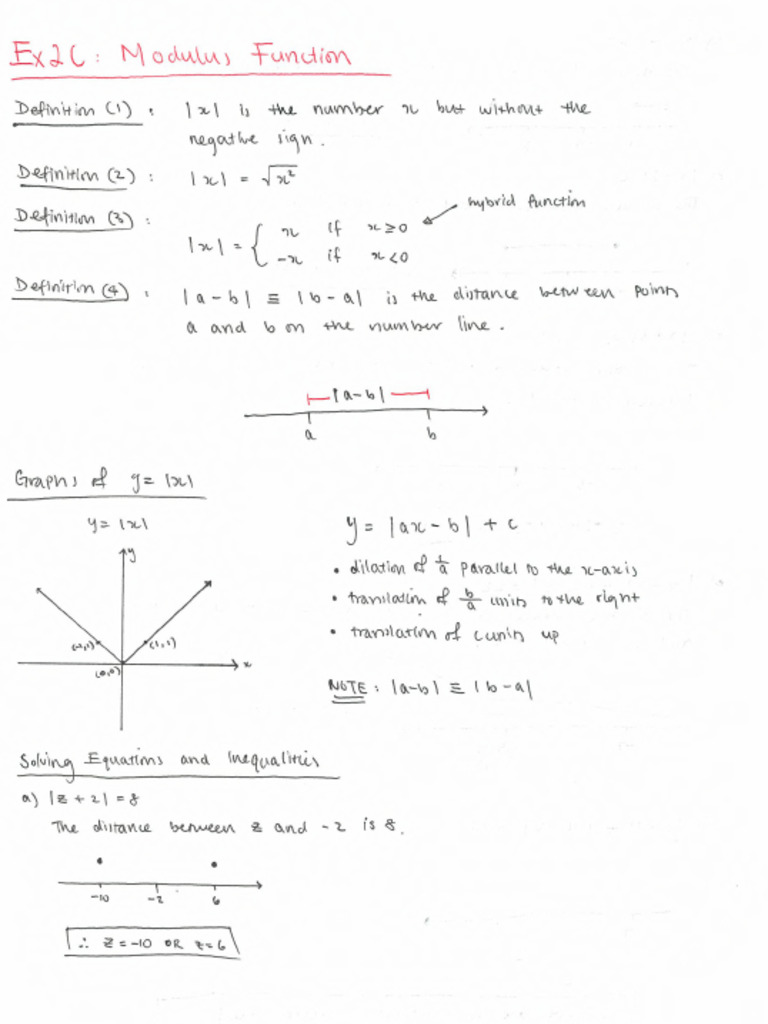 Ex2C: Modulus Function
Definition (1): |x| is the number x but without the
negative sign.
Definition (2): |x| = √x²
Definition (3):
hybrid function
|x| = { x if x ≥ 0
-x if x < 0
Definition (4): |a-b| ≡ |b-a| is the distance between points
a and b on the number line.
|a-b|
a b
Graphs of y = |x|
y = |x|
y
(1,1)
x
(0,0)
y = |ax - b| + c
• dilation of 1/a parallel to the x-axis
• translation of b/a units to the right
• translation of c units up
NOTE: |a-b| ≡ |b-a|
Solving Equations and Inequalities
a) |z + 2| = 8
The distance between z and -2 is 8.
-10 -2 6
∴ z = -10 OR z = 6